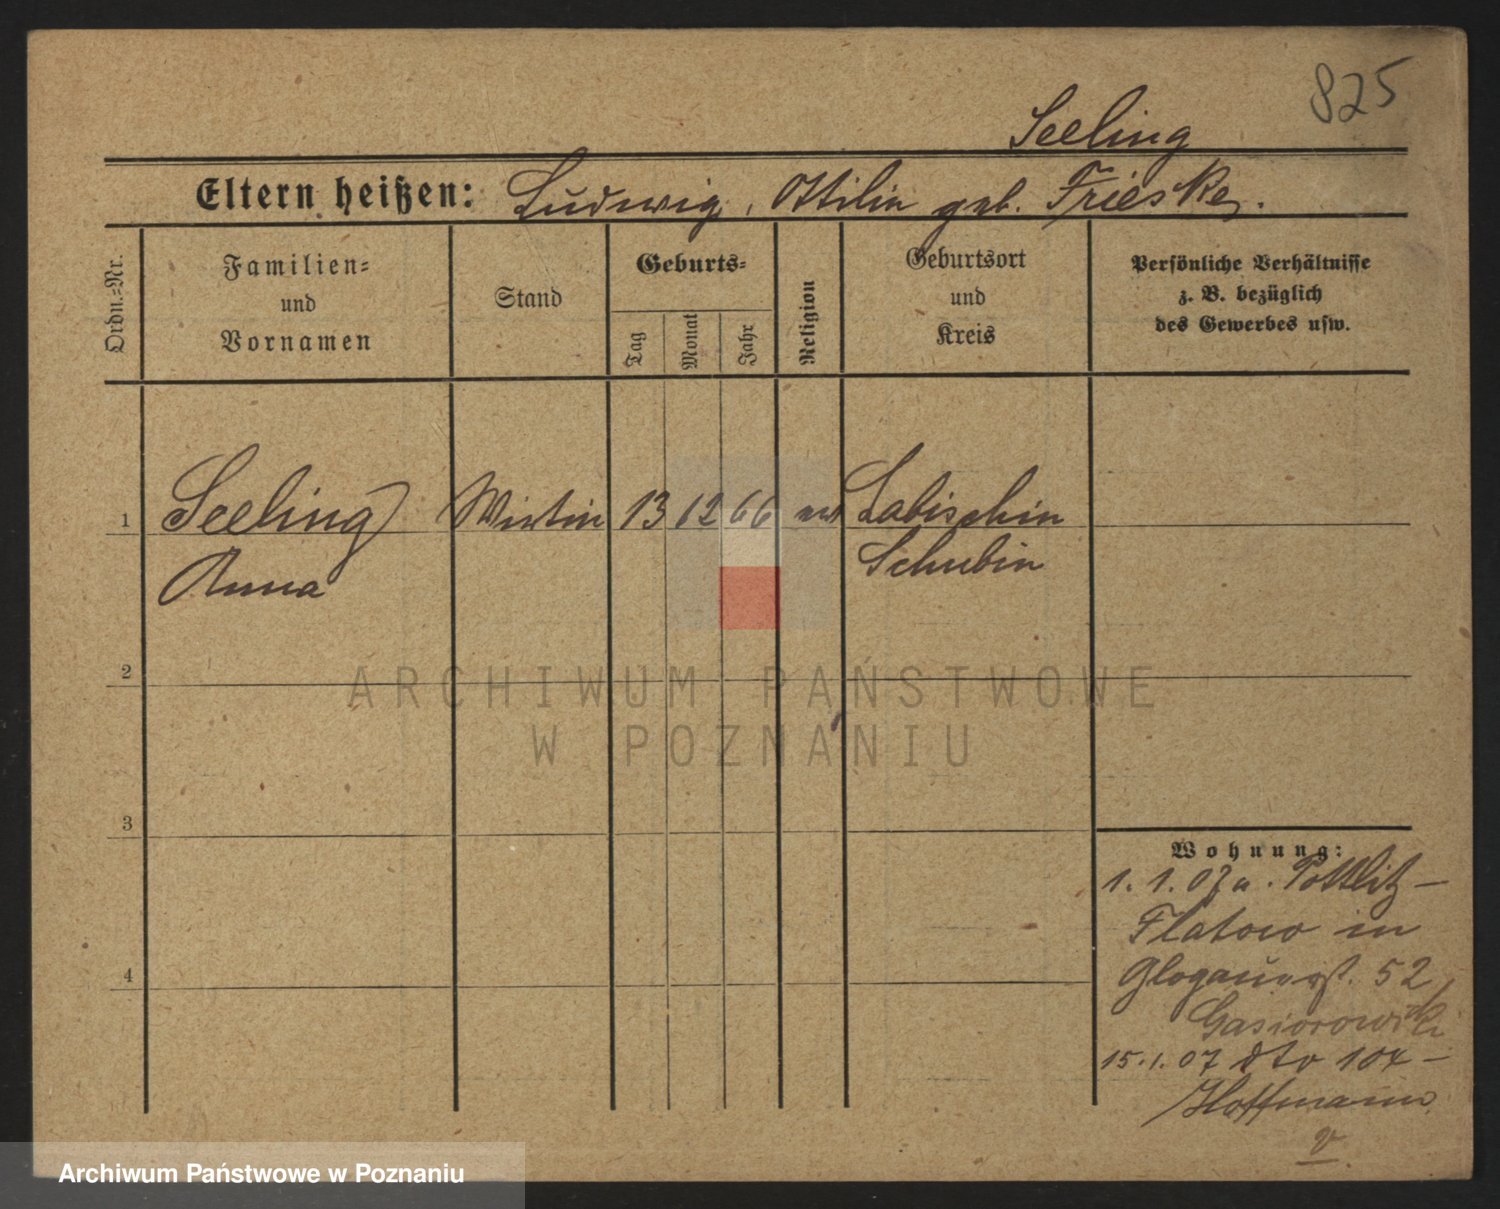 825
Seeling
Eltern heißen: Ludwig, Ottilie geb. Frieske.
Ordn.-Nr.
Familien-
und
Vornamen
Stand
Geburts-
Tag
Monat
Jahr
Religion
Geburtsort
und
Kreis
Persönliche Verhältnisse
z. B. bezüglich
des Gewerbes usw.
1 Seeling Wirtin 13 12 66 ev Labischin
Anna Schubin
2
3
4
Wohnung:
1. 1. 07 a. Pottlitz –
Flatow in
Glogauerst. 52
Gasiorowski
15.1.07 dto 104 –
Hoffmann
ARCHIWUM PAŃSTWOWE
W POZNANIU
Archiwum Państwowe w Poznaniu